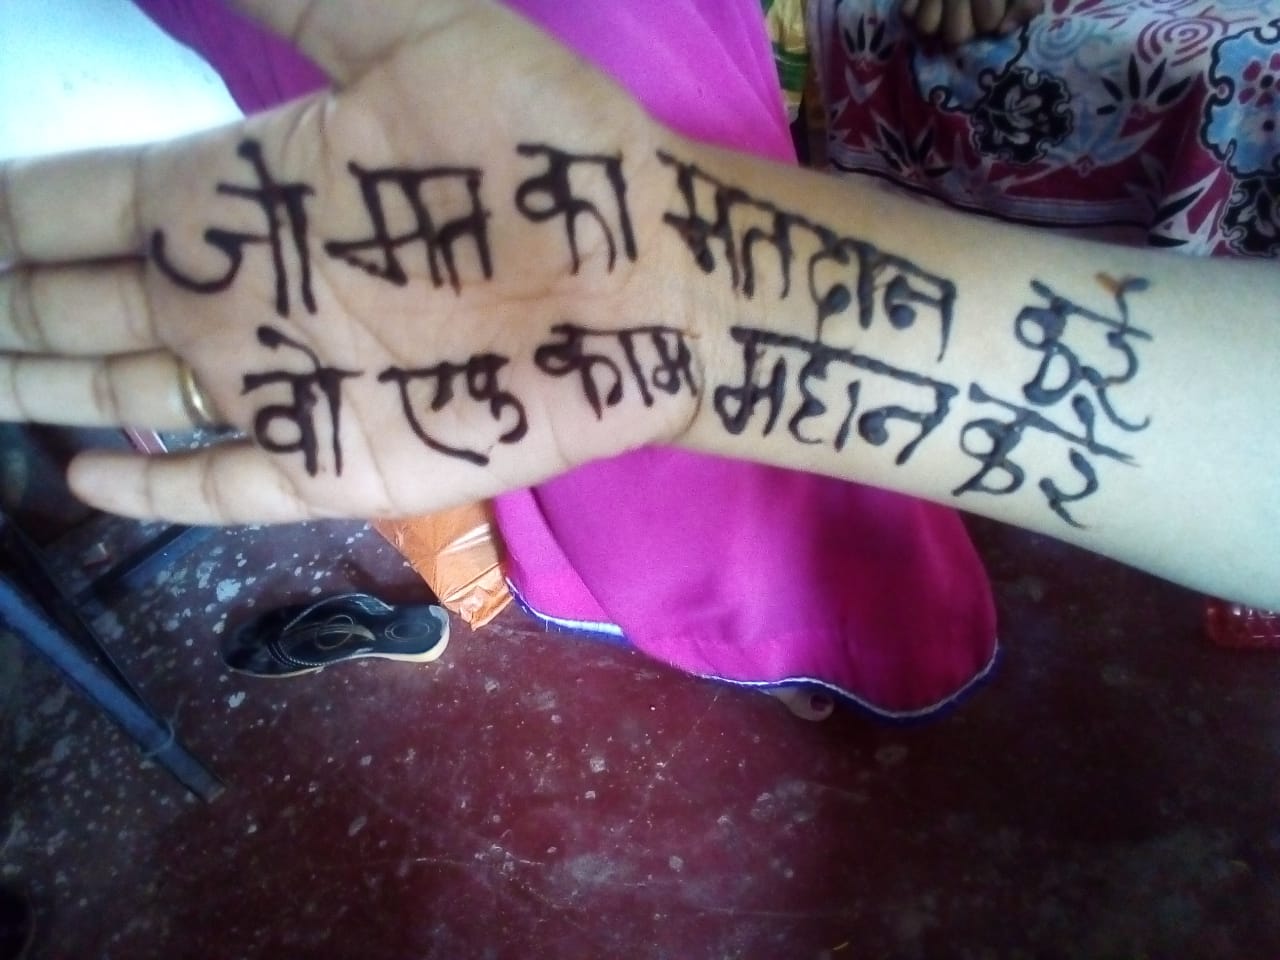 जो मत का मतदान करे
वो एक काम महान करे